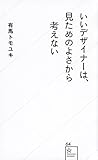 いいデザイナーは、
見ためのよさから
考えない
有馬トモユキ